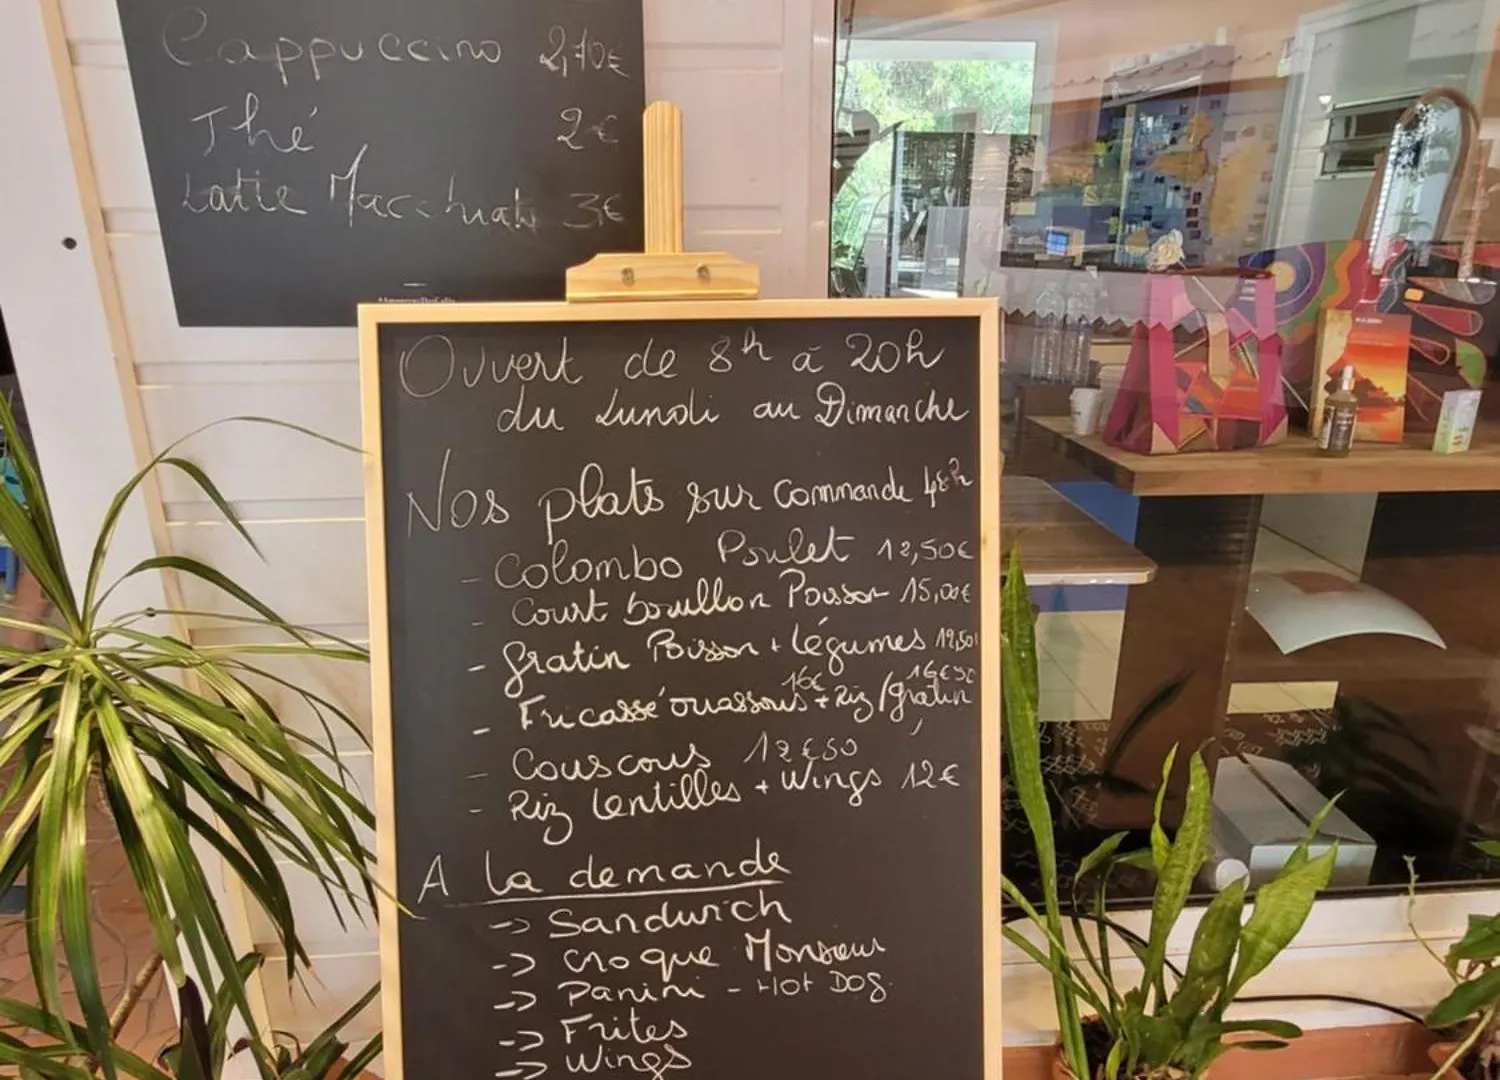 Cappuccino 2,70€
Thé 2€
Latte Macchiato 3€
Ouvert de 8h à 20h
du Lundi au Dimanche
Nos plats sur Commande 48h
- Colombo Poulet 12,50€
- Court bouillon Poisson 15,00€
- Gratin Poisson + Légumes
- Fricassé ouassous 16€ + Riz / gratin 16€50
- Couscous 12€50
- Riz lentilles + Wings 12€
A la demande
-> Sandwich
-> Croque Monsieur
-> Panini - Hot Dog
-> Frites
-> Wings